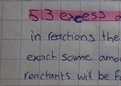 5.3 excess a
in reactions the
exact same am
reactants will be f